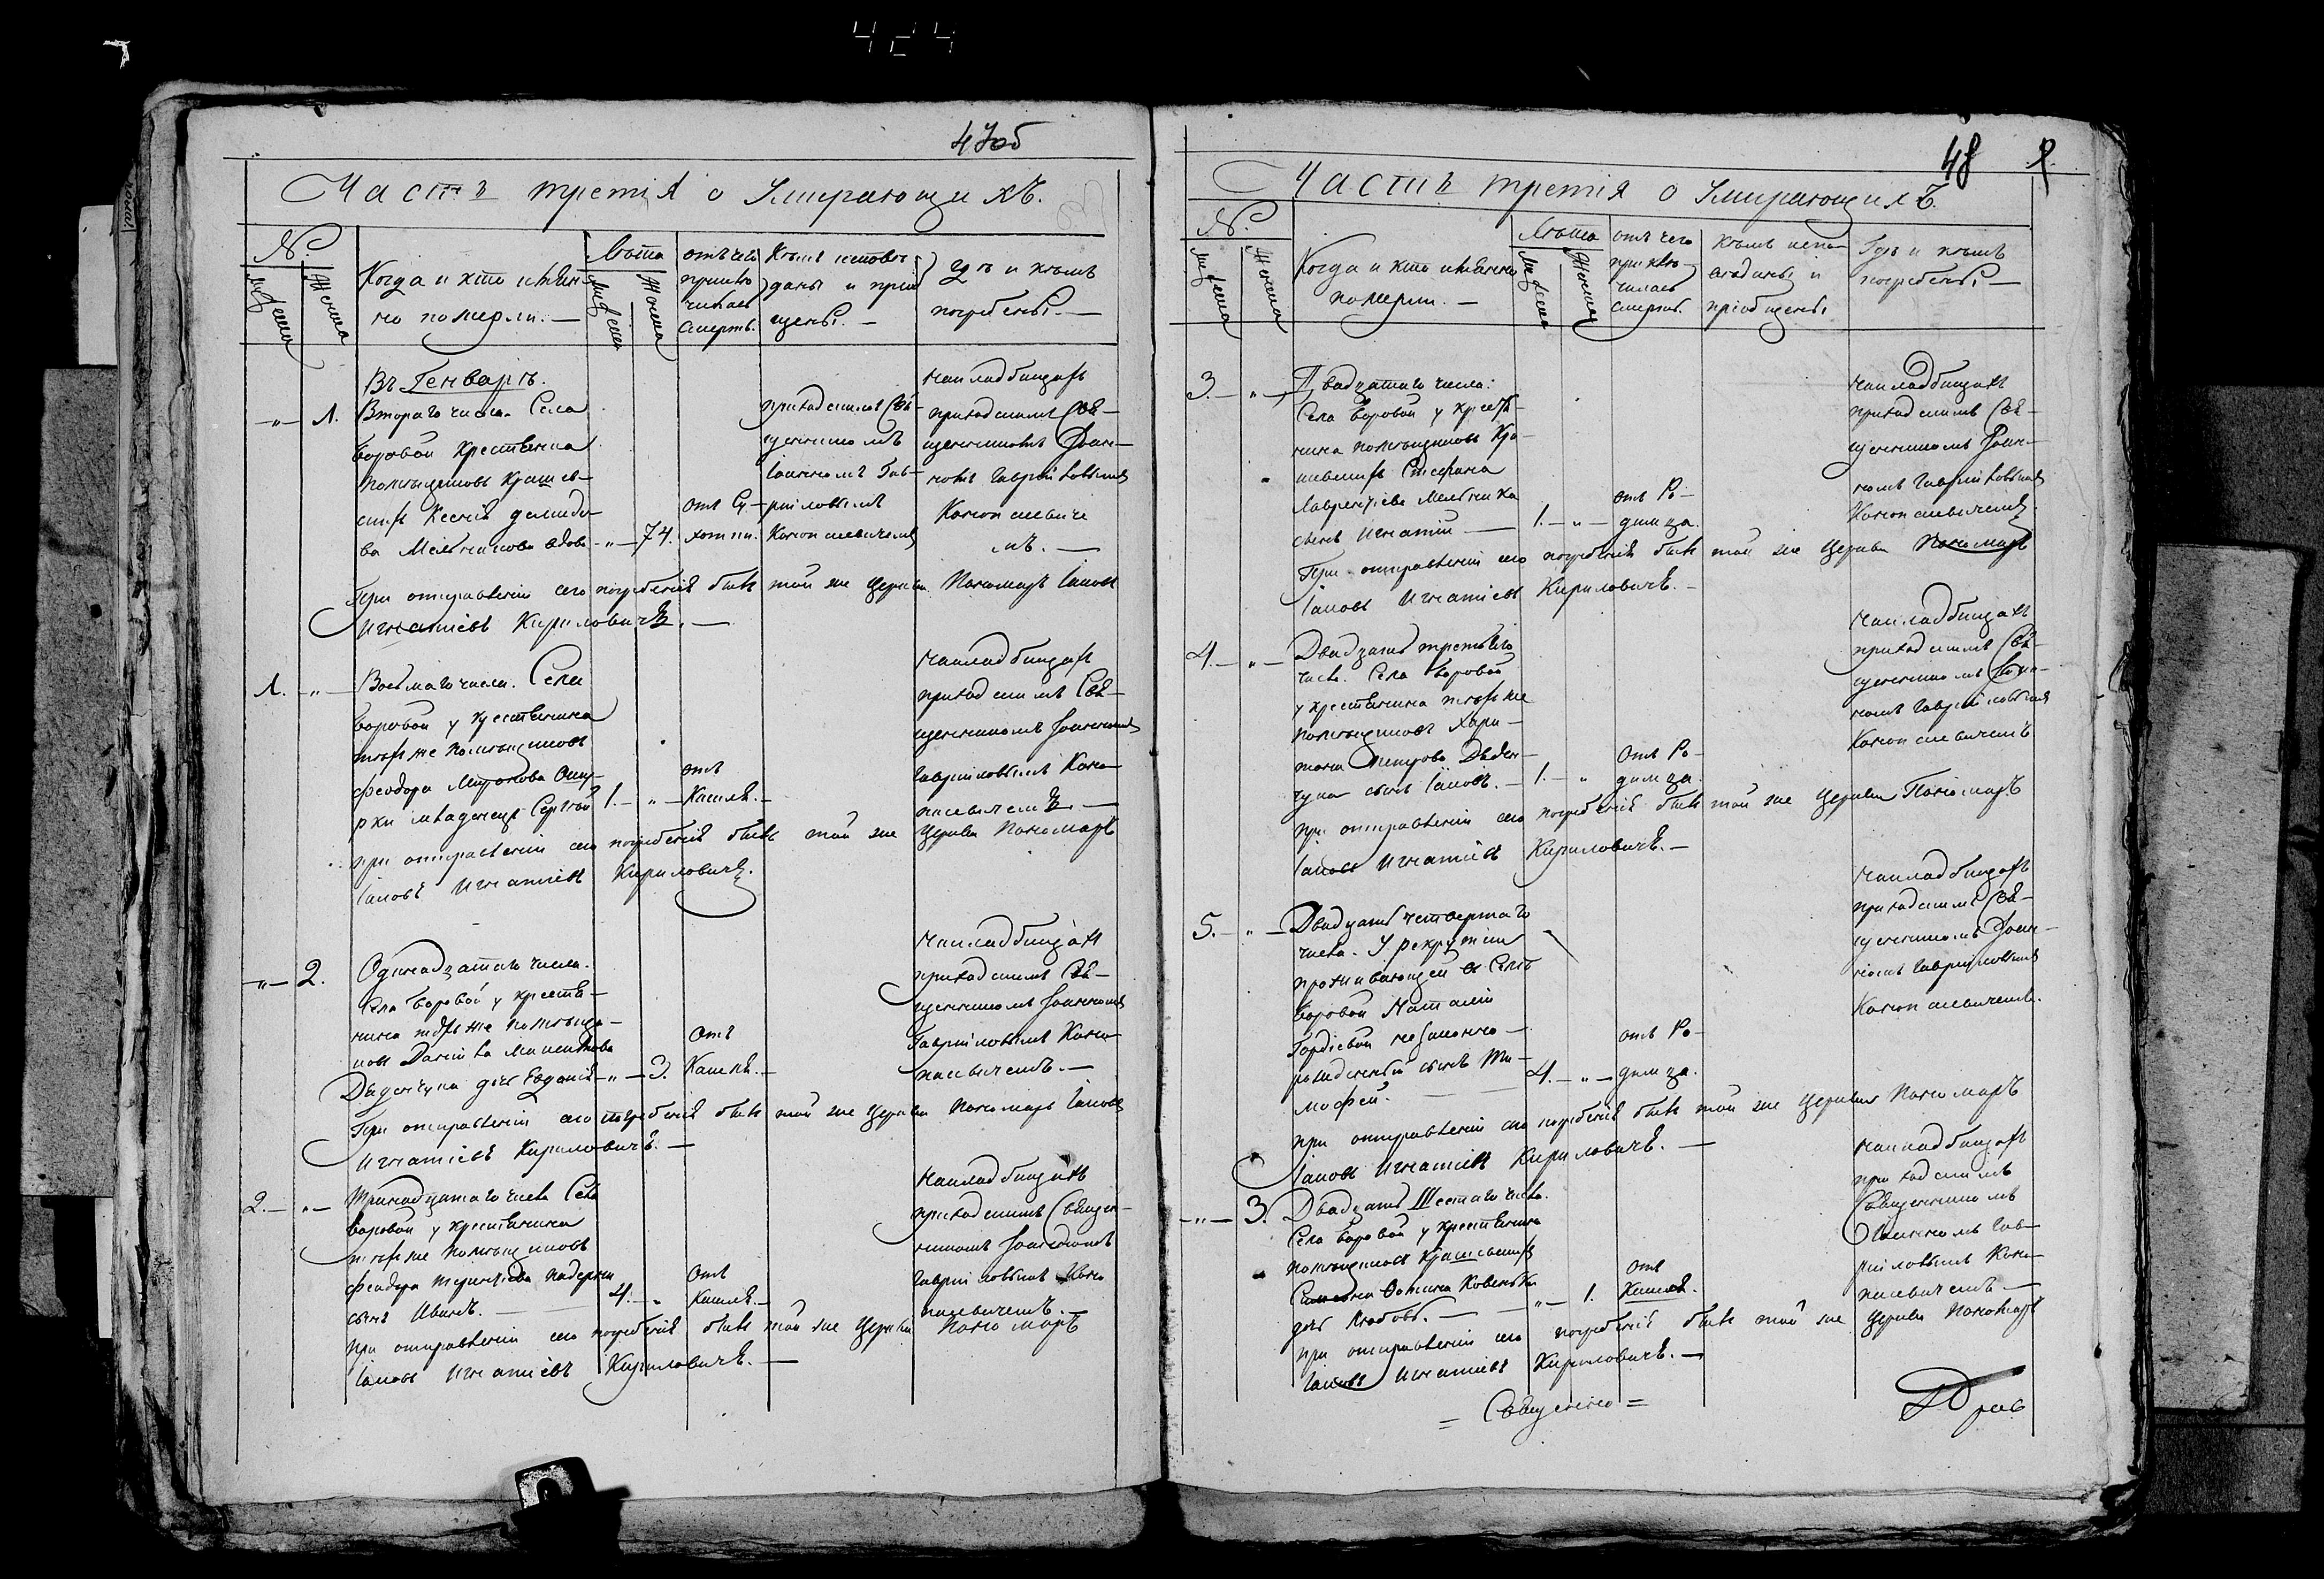 424
47об
Часть третія о Умирающихъ.
№.
Мужеска
Женска
Когда и кто имян-
но померли. —
Лѣта
Мужеска
Женска
отъ чего
приклю
чилась
смерть.
Кѣмъ исповѣ
даны и прио
щены. —
Гдѣ и кѣмъ
погребены. —
Въ Генварѣ.
— „ — 1. Втораго числа. Села
Боровой крестьянка
помѣщиковъ
Ксенія Демидо-
ва Мельникова вдова — „ — 74.
отъ Су-
хотки.
приходскимъ Свя-
щенникомъ
Іоанномъ Гав-
ріиловымъ
на кладбищахъ
приходскимъ Свя-
щенникомъ Іоан-
номъ Гавріиловымъ
При отправленіи сего погребенія былъ той же Церкви Пономарь Іаковъ
Игнатіевъ Кириловичъ. —
1. — „ — Восьмаго числа. Села
Боровой у крестьянина
тѣхъ же помѣщиковъ
Феодора Миронова
младенецъ Сергій 1. — „ —
отъ
Кашля. —
на кладбищахъ
приходскимъ Свя-
щенникомъ Іоанномъ
Гавріиловымъ
при отправленіи сего погребенія былъ той же Церкви Пономарь
Іаковъ Игнатіевъ Кириловичъ.
— „ — 2. Одинадцатаго числа.
Села Боровой у крестья-
нина тѣхъ же помѣщи-
ковъ Даніила
дочь Евдокія — „ — 3.
Отъ
Кашля. —
на кладбищахъ
приходскимъ Свя-
щенникомъ Іоанномъ
Гавріиловымъ
При отправленіи сего погребенія былъ той же Церкви Пономарь Іаковъ
Игнатіевъ Кириловичъ. —
2. — „ — Тринадцатаго числа Села
Боровой у крестьянина
тѣхъ же помѣщиковъ
Феодора Терентіева
сынъ Иванъ. — 4. — „
Отъ
Кашля. —
на кладбищахъ
приходскимъ Священ-
никомъ Іоанномъ
Гавріиловымъ
При отправленіи сего погребенія былъ той же Церкви Пономарь
Іаковъ Игнатіевъ Кириловичъ. —
48
Часть третія о Умирающихъ.
№.
Мужеска
Женска
Когда и кто имянно
померли. —
Лѣта
Мужеска
Женска
отъ чего
приклю-
чилась
смерть.
кѣмъ испо-
вѣданы и
пріобщены
Гдѣ и кѣмъ
погребены —
3. — „ — Двадцатаго числа:
Села Боровой у крестья-
нина помѣщиковъ
Стефана
Лаврентіева Мельника
сынъ Игнатій — 1. — „ —
отъ Ро-
димца.
на кладбищахъ
приходскимъ Свя-
щенникомъ Іоан-
номъ Гавріиловымъ
При отправленіи сего погребенія былъ той же Церкви Пономарь
Іаковъ Игнатіевъ Кириловичъ. —
4. — „ — Двадцать третьяго
числа. Села Боровой
у крестьянина тѣхъ же
помѣщиковъ Хари-
тона Петрова
сынъ Іаковъ. — 1. — „
Отъ Ро-
димца.
на кладбищахъ
приходскимъ Свя-
щенникомъ Іоан-
номъ Гавріиловымъ
при отправленіи сего погребенія былъ той же Церкви Пономарь
Іаковъ Игнатіевъ Кириловичъ. —
5. — „ — Двадцать четвертаго
числа. У рекрутки
проживающей въ Селѣ
Боровой Наталіи
Гордіевой незаконно-
рожденный сынъ Ти-
мофей. — 4. — „ —
отъ Ро-
димца.
на кладбищахъ
приходскимъ Свя-
щенникомъ Іоан-
номъ Гавріиловымъ
при отправленіи сего погребенія былъ той же Церкви Пономарь
Іаковъ Игнатіевъ Кириловичъ. —
— „ — 3. Двадцать Шестаго числа.
Села Боровой у крестьянина
помѣщиковъ
дочь Любовь. — „ — 1.
отъ
Кашля.
на кладбищахъ
приходскимъ
Священникомъ
Іоанномъ Гав-
ріиловымъ
при отправленіи сего погребенія былъ той же Церкви Пономарь
Іаковъ Игнатіевъ Кириловичъ. —